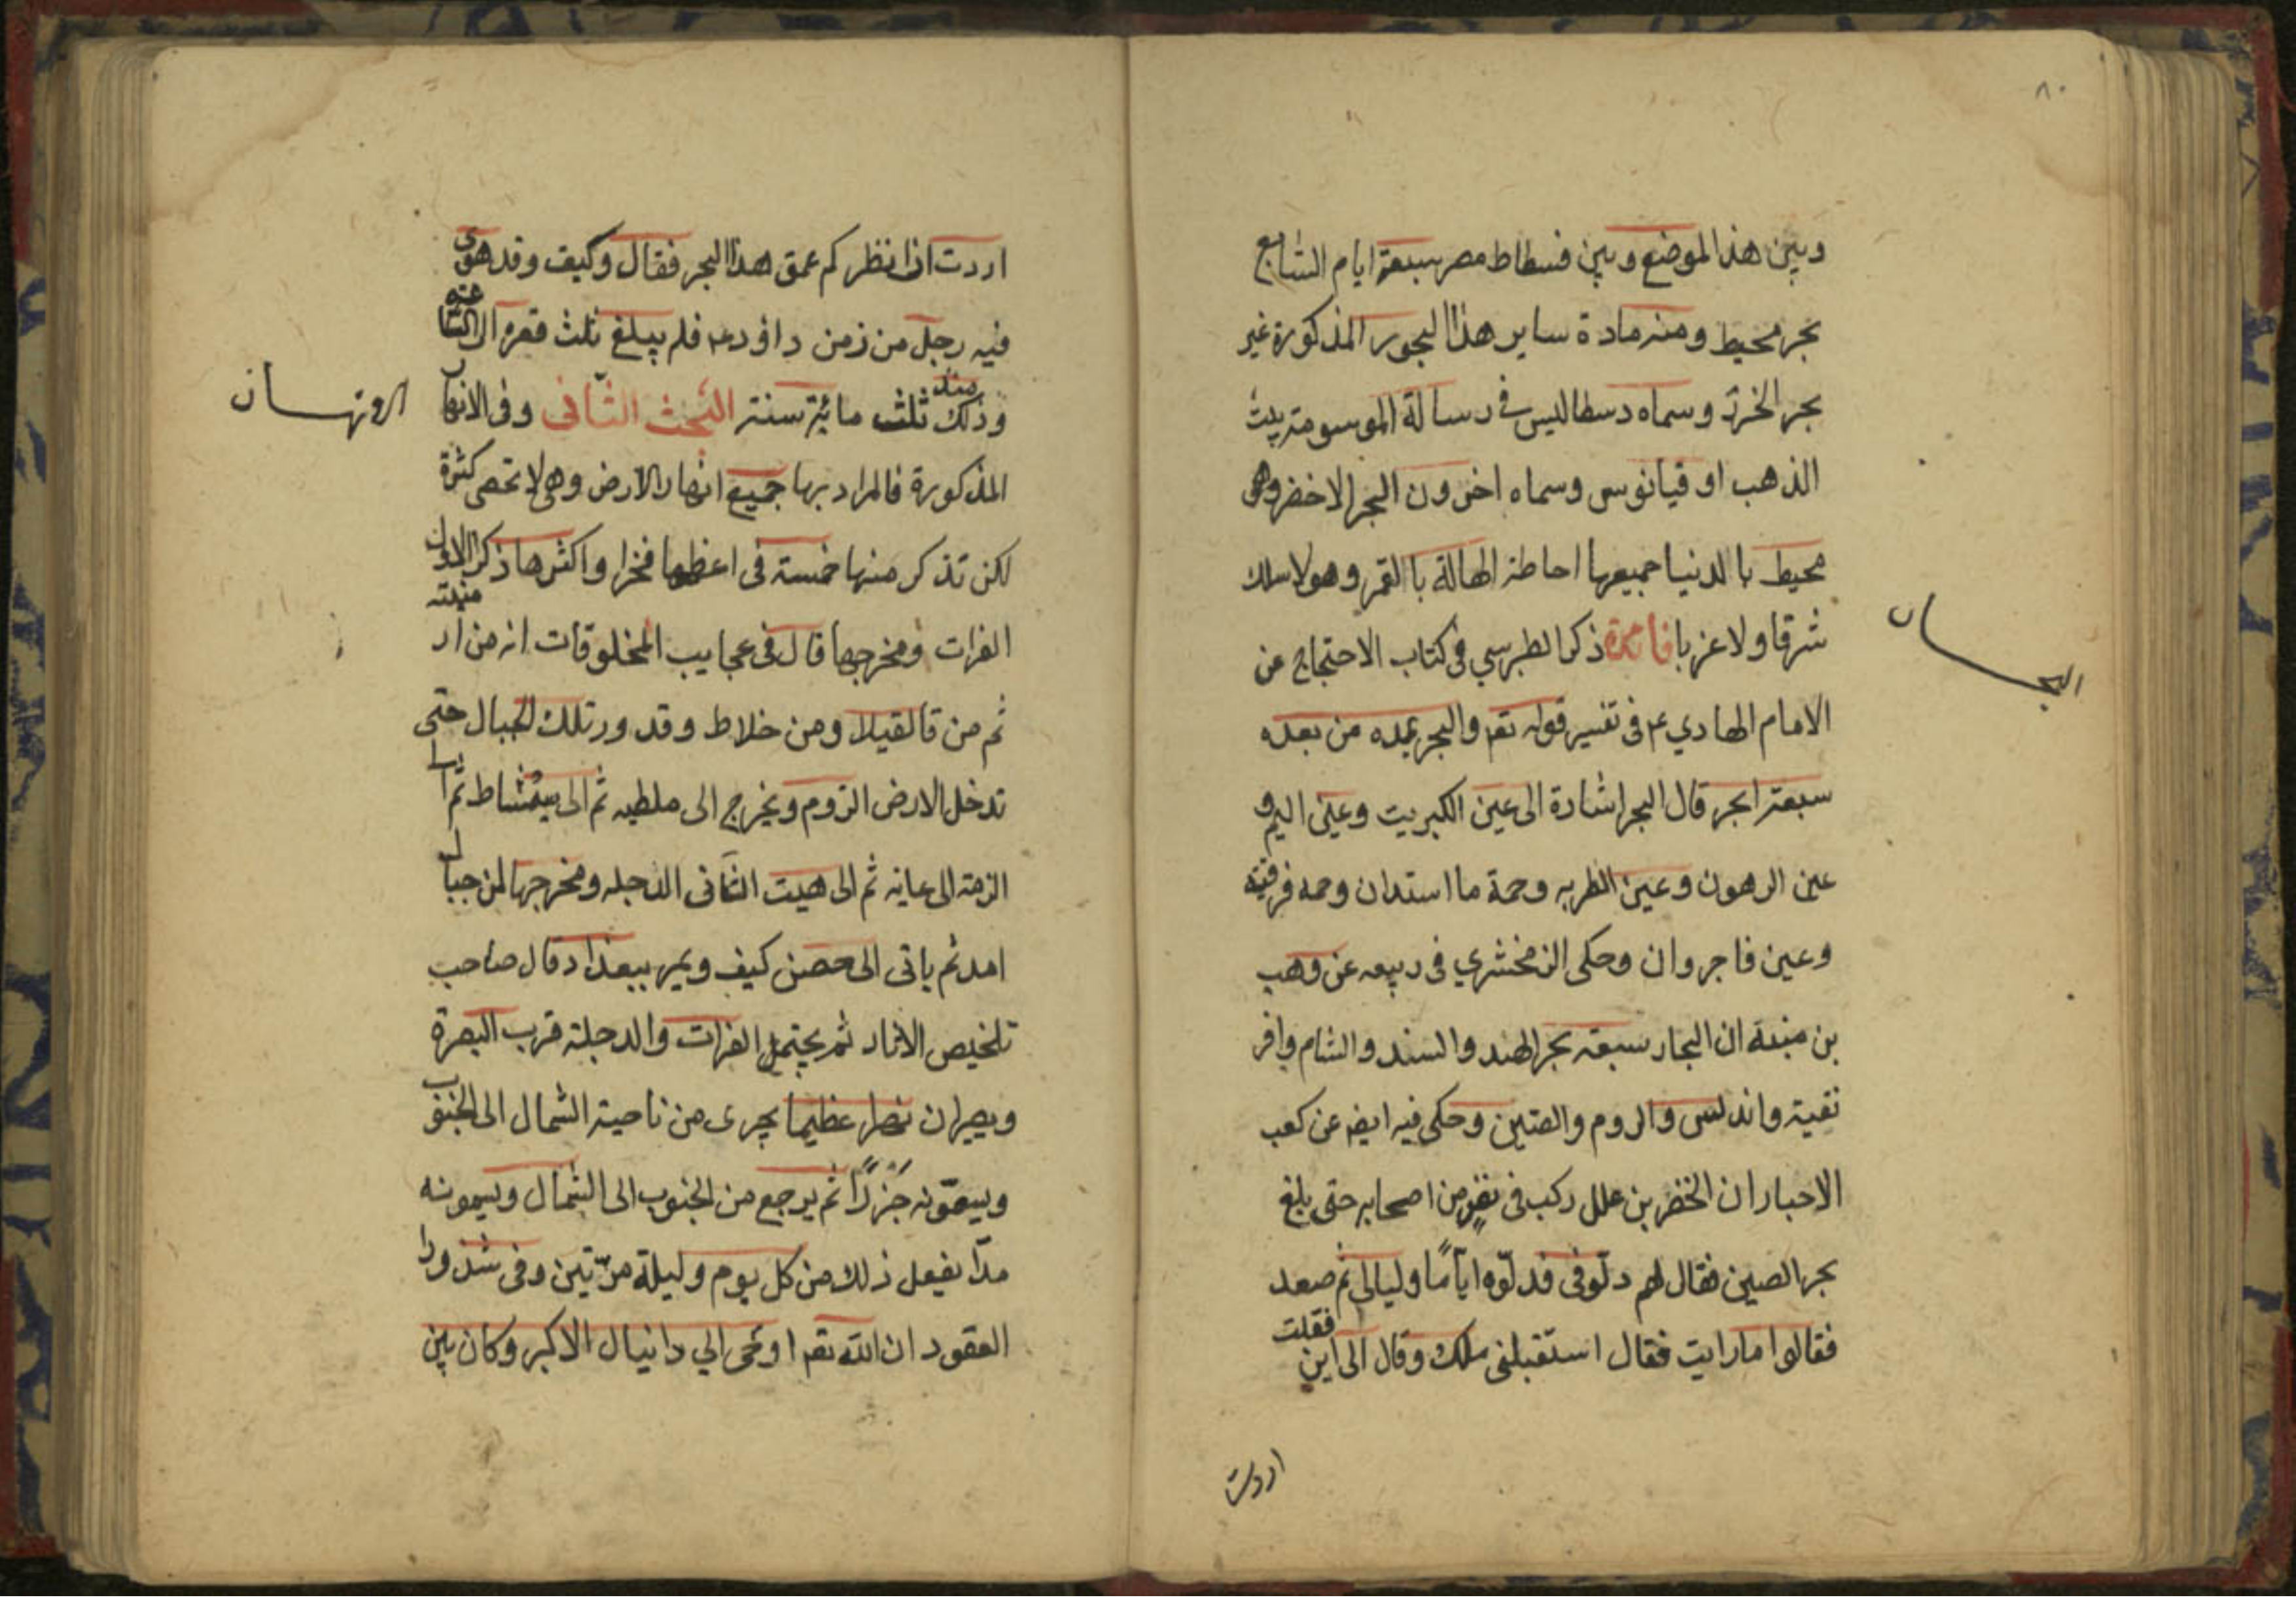 ٨٠
وبين هذا الموضع وبين فسطاط مصر سبعة ايام السابع
بحر محيط ومنه مادة ساير هذا البحور المذكورة غير
بحر الخزر وسماه دسطاليس في رسالة الموسومة ببيت
الذهب اوقيانوس وسماه اخرون البحر الاخضر وهو
محيط بالدنيا جميعها احاطة الهالة با القمر وهو لا سلك
شرقا ولا غربا فائدة ذكر الطبرسي في كتاب الاحتجاج عن
الامام الهادي ع م في تفسير قوله تعم والبحر يمده من بعده
سبعة ابحر قال البحر اشارة الى عين الكبريت وعين اليم و
عين البرهوت وعين الطبريه وحمة ماسندان وحمه فرقيته
وعين فاجروان وحكى الزمخشري فى ربيعه عن وهب
بن منبه ان البحار سبعة بحر الهند والسند والشام وافر
نقية واندلس والروم والصين وحكى فيه ايضه عن كعب
الاحبار ان الخضر بن علل ركب فى نفر من اصحابه حتى بلغ
بحر الصين فقال لهم دلّوفى فدلّوه اياما وليالى ثم صعد
فقالوا ما رايت فقال استقبلنى ملك وقال الى اين فقلت
البحـــار
اردت
اردت ان انظر كم عمق هذا البحر فقال وكيف وقد هوى
فيه رجل من زمن داود ع م فلم يبلغ ثلث قعره الى الساعه
وذلك منذ ثلث مائة سنة البحث الثانى وفى الانهار
المذكورة فالمراد بها جميع انهار الارض وهى لا تحصى كثرة
لكن تذكر منها خمسة فى اعظمها فخرا واكثرها ذكر الاول
الفرات ومخرجها قال فى عجايب المخلوقات انه من ارمنيته
ثم من قالقيلا ومن خلاط وقد ور تلك الجبال حتى
تدخل الارض الروم ويخرج الى ملطيه ثم الى سمشاط ثم الى
الرقة الى عانه ثم الى هيت الثانى الدجله ومخرجها من جبال
امد ثم ياتى الى حصن كيف ويمر ببغداد قال صاحب
تلخيص الاثار ثم يجتمل الفرات والدجلة قرب البصرة
ويصيران نهرا عظيما يجرى من ناحية الشمال الى الجنوب
ويسمّونه جزرًا ثم يرجع من الجنوب الى الشمال ويسمونه
مدّا يفعل ذلك من كل يوم وليلة مرّتين وفى شذورا
العقود ان الله تعم اوحى الي دانيال الاكبر وكان بين
الانهـــار